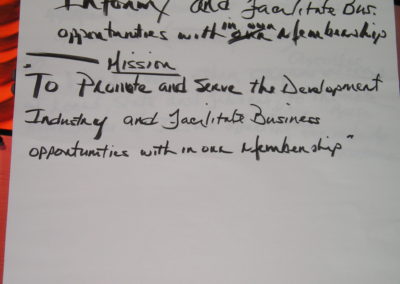 Informy and Facilitate Bus.
in our
opportunities with our Membership
Mission
"To Promote and Serve the Development
Industry and Facilitate Business
opportunities with in our Membership"